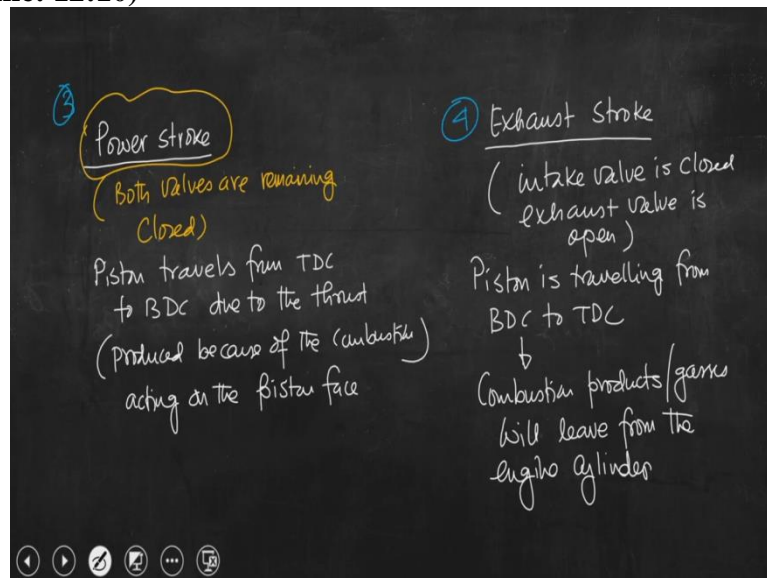 ③
Power stroke
(Both valves are remaining
Closed)
Piston travels from TDC
to BDC due to the thrust
(produced because of the combustion)
acting on the piston face
④ Exhaust Stroke
(intake valve is closed
exhaust valve is
open)
Piston is travelling from
BDC to TDC
↓
Combustion products/gases
Will leave from the
engine cylinder